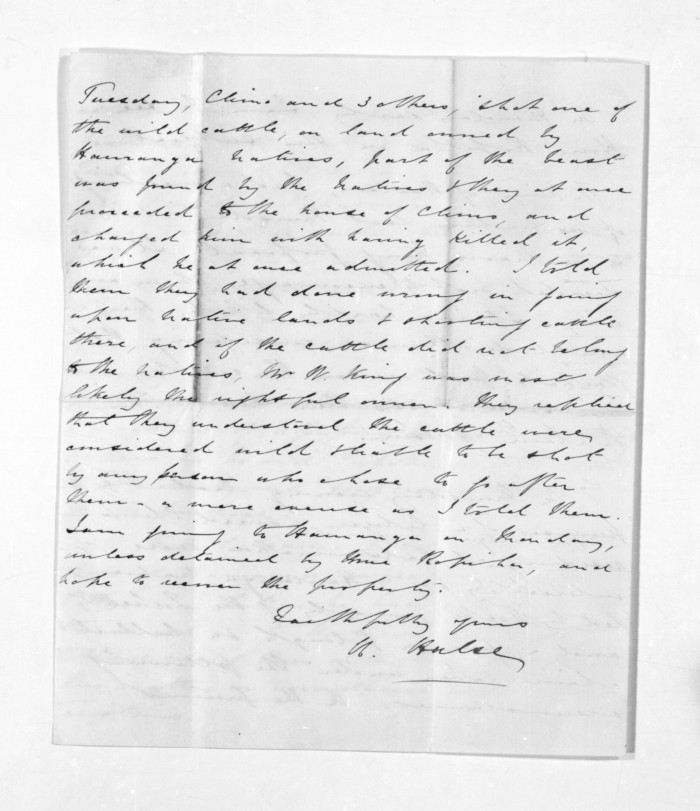 Tuesday, Clims and 3 others, shot one of
the wild cattle, on land owned by
Hamanga natives, part of the beast
was found by the natives & they at once
proceeded to the house of Clims, and
charged him with having killed it,
which he at once admitted. I told
them they had done wrong in going
upon native lands & shooting cattle
there, and if the cattle did not belong
to the natives, Mr W. King was most
likely the rightful owner. They replied
that they understood the cattle were
considered wild & liable to be shot
by any person who chose to go after
them - a mere excuse as I told them.
I am going to Hamanga on Monday,
unless detained by Hone Ropiha, and
hope to recover the property.
Faithfully yours
Hulse